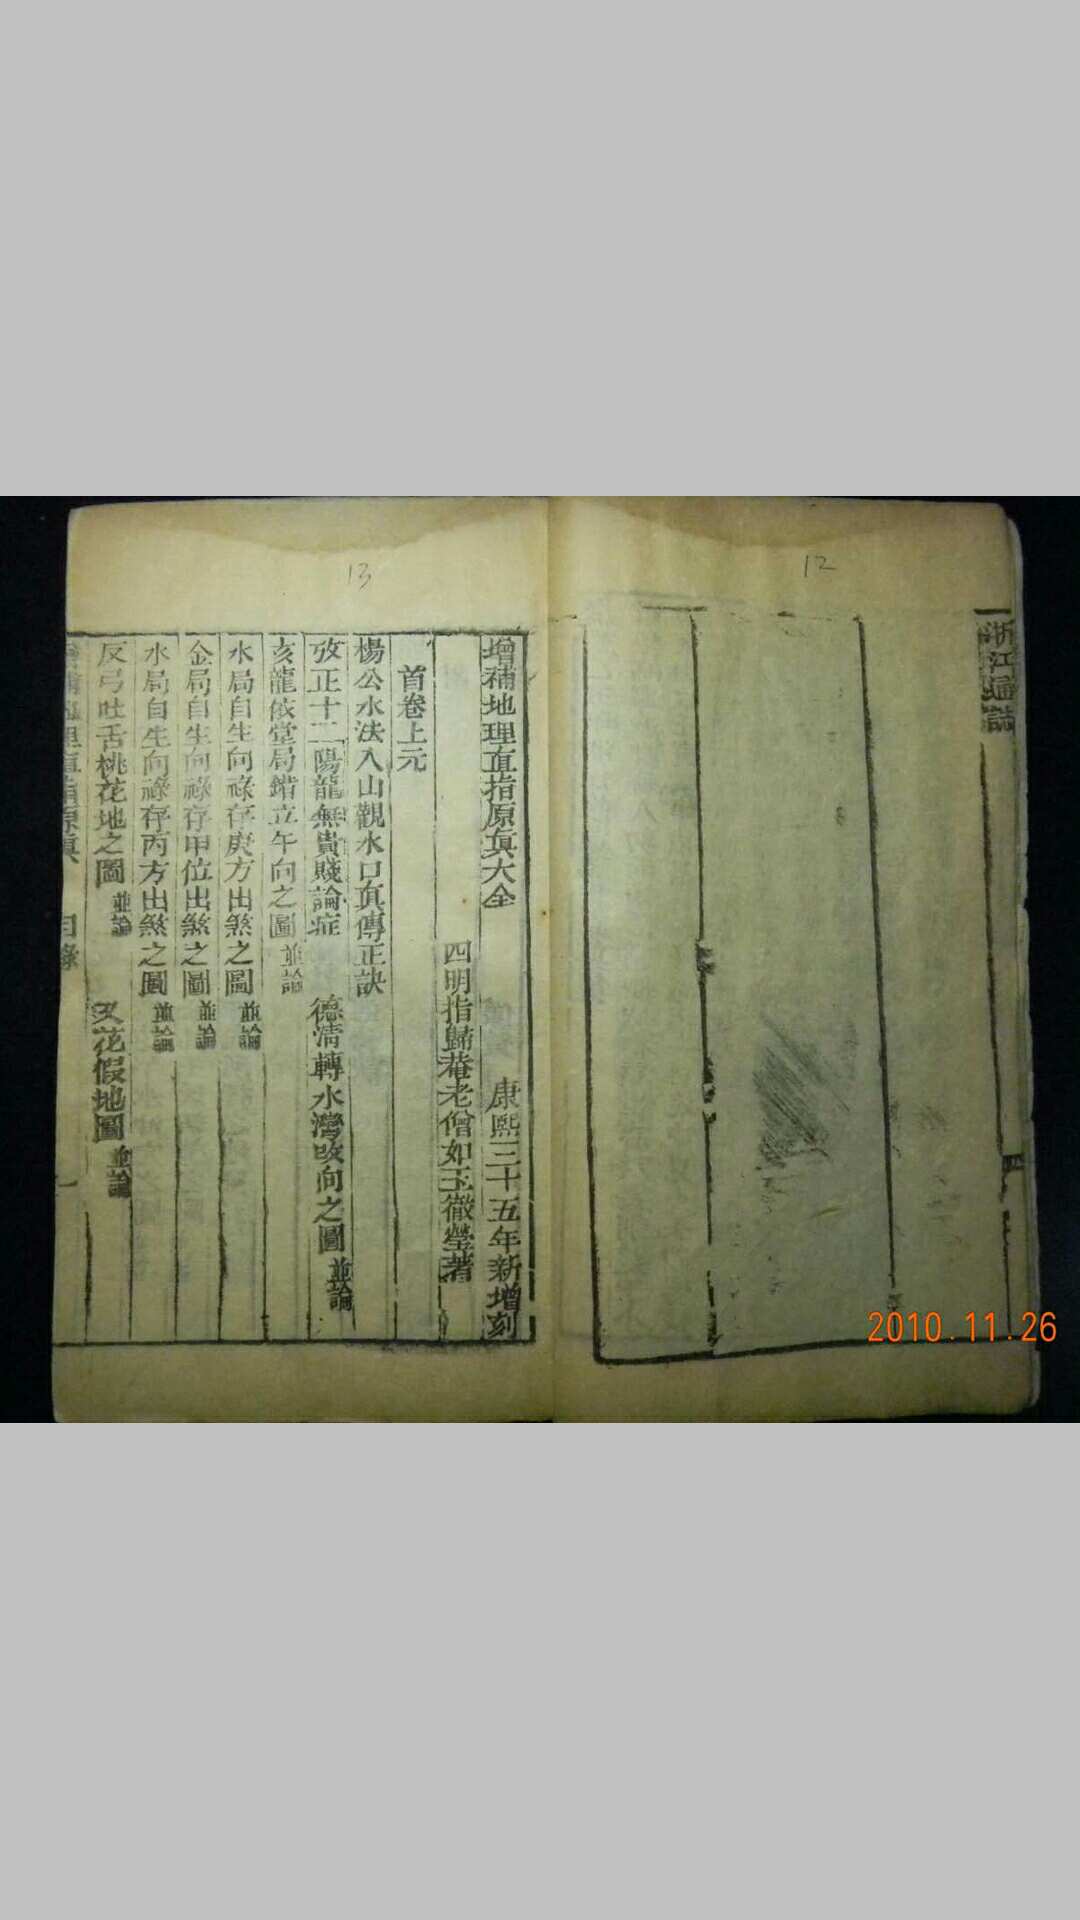 12
浙江通誌
四
13
增補地理直指原眞大全 康熙三十五年新增刻
四明指歸菴老僧如玉徹瑩著
首卷上元
楊公水法入山觀水口眞傳正訣
攷正十二陽龍無貴賤論症 德淸轉水灣改向之圖 並論
亥龍依堂局錯立午向之圖 並論
水局自生向祿存庚方出煞之圖 並論
金局自生向祿存甲位出煞之圖 並論
水局自生向祿存丙方出煞之圖 並論
反弓吐舌桃花地之圖 並論 又花假地圖 並論
原眞 目錄 一
2010.11.26